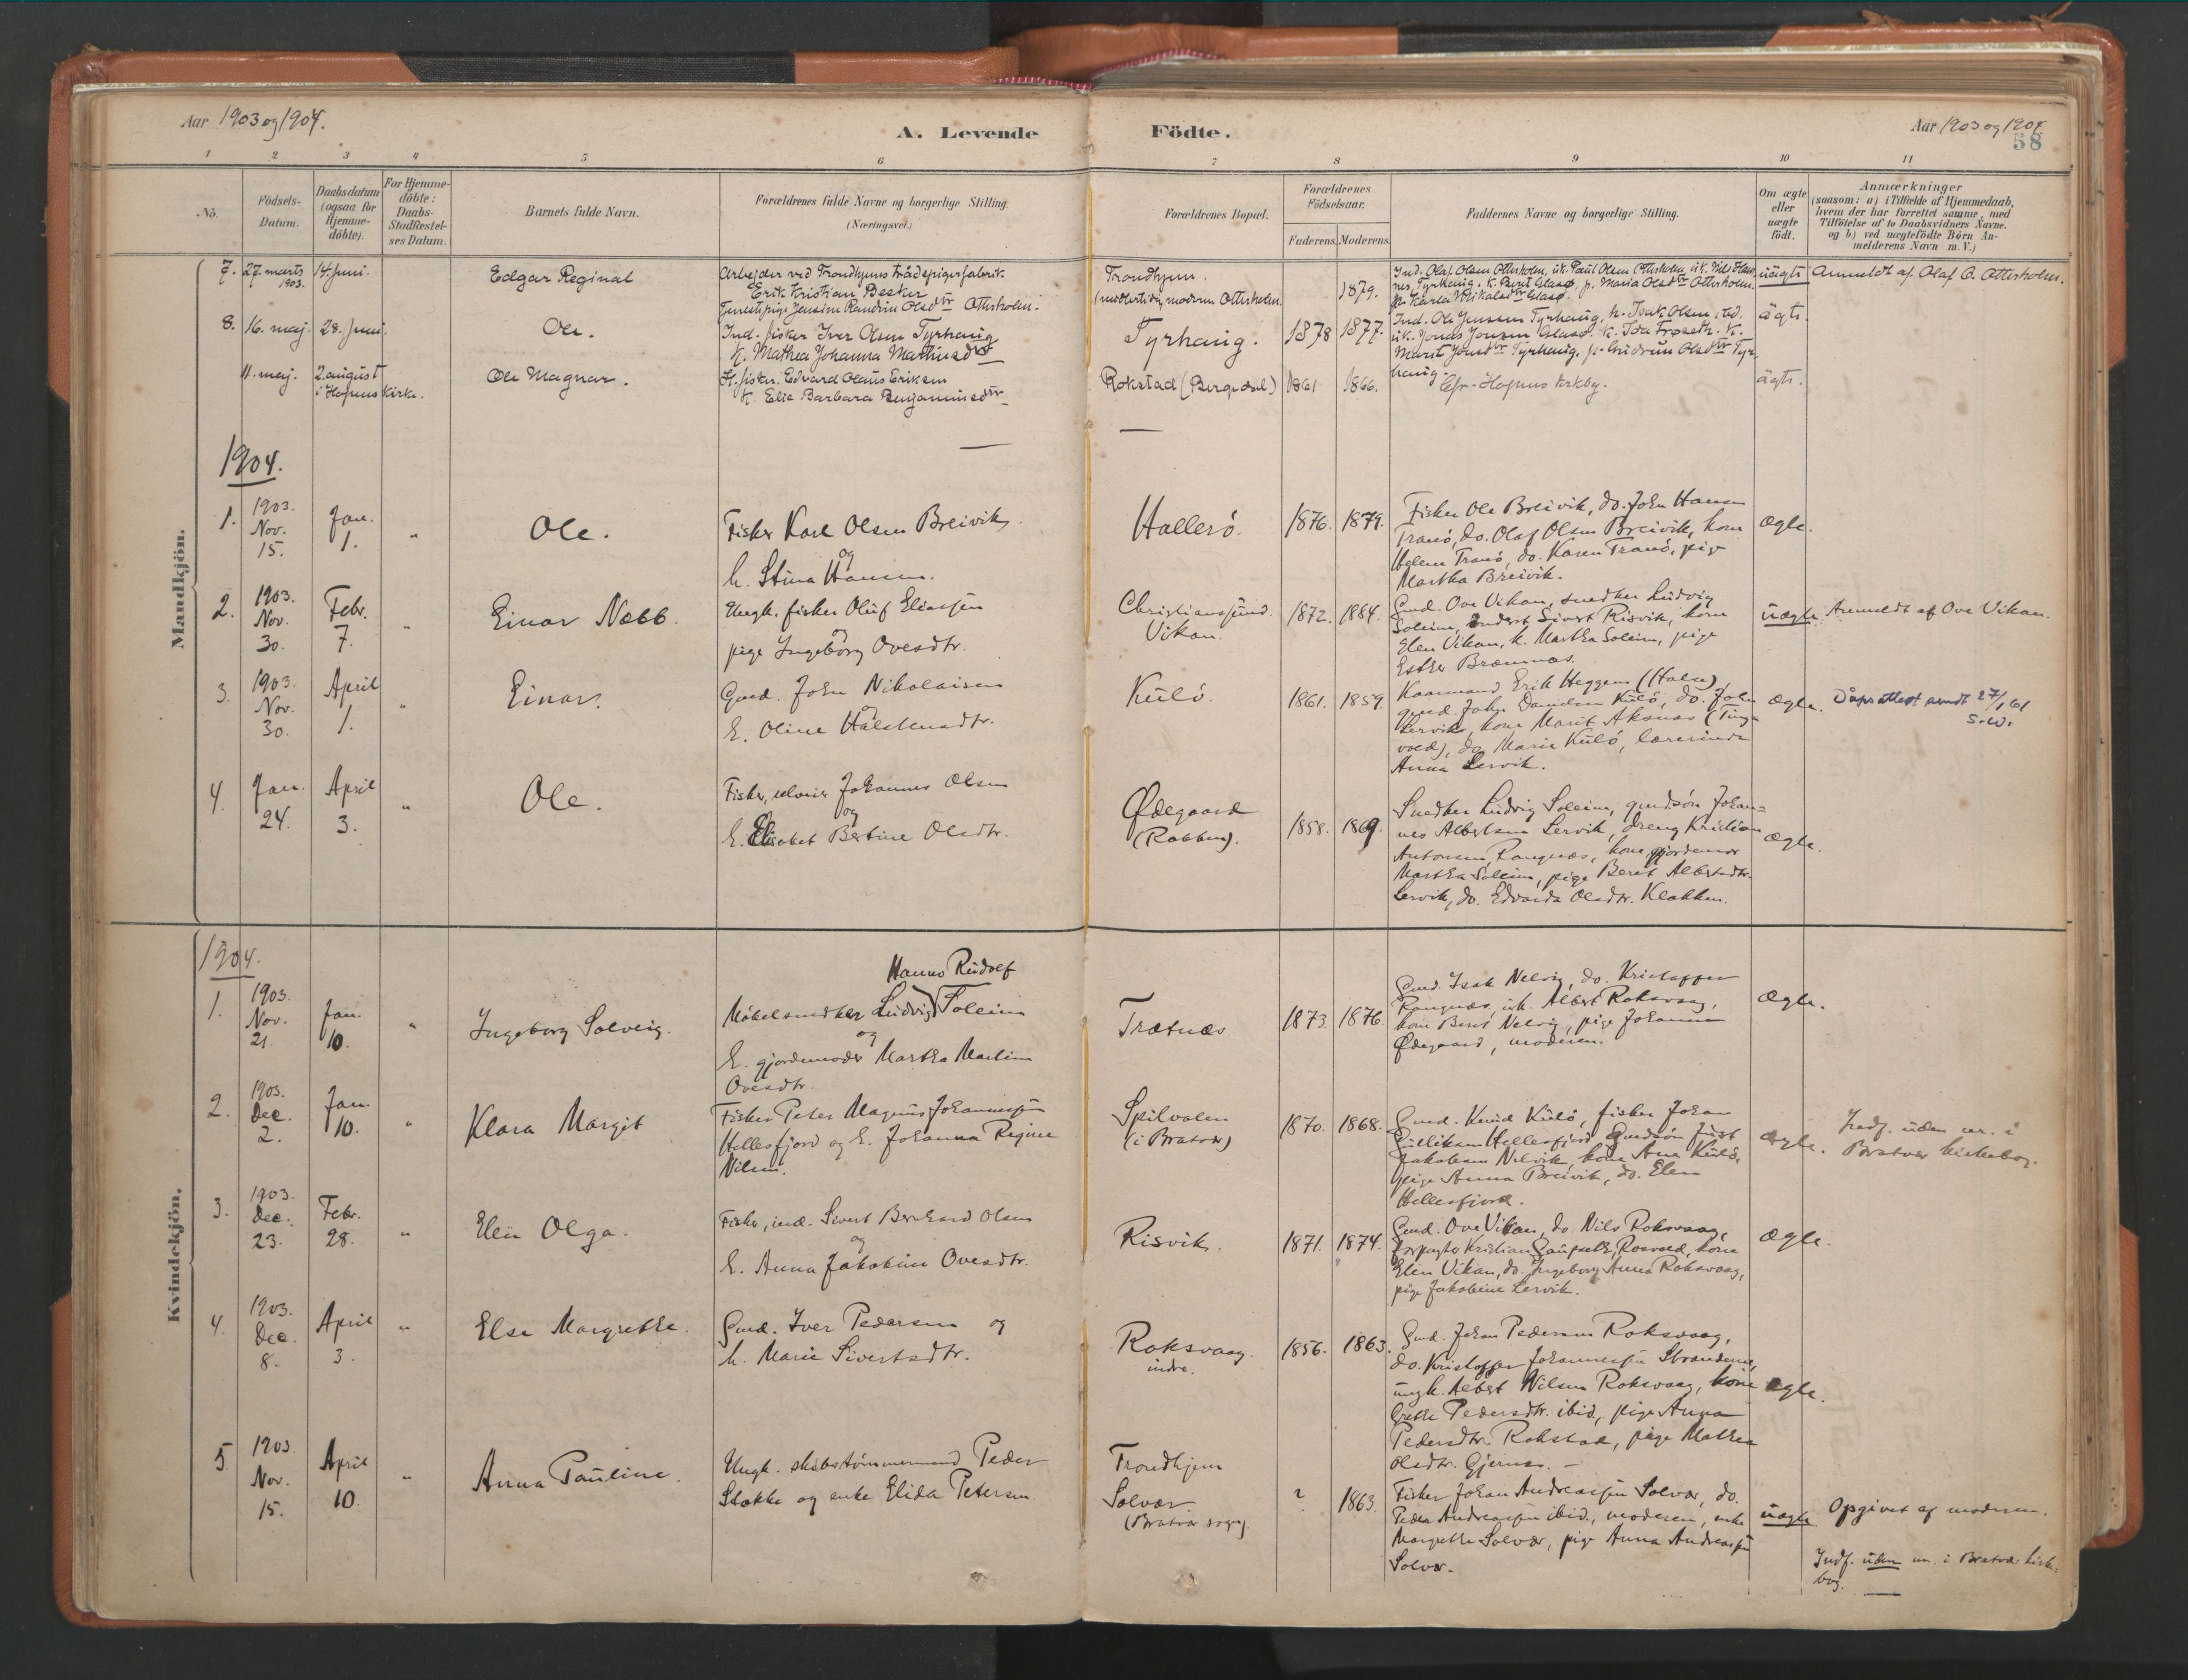 Aar 1903 og 1904.
A. Levende Födte.
Aar 1903 og 1904
58
1 2 3 4 5 6 7 8 9 10 11
No.
Födsels-
Datum.
Daabsdatum
(ogsaa for
Hjemme-
döbte).
For Hjemme-
döbte:
Daabs-
Stadfæstel-
ses Datum.
Barnets fulde Navn.
Forældrenes fulde Navne og borgerlige Stilling
(Næringsvei.)
Forældrenes Bopæl.
Forældrenes
Födselsaar.
Faderens. Moderens.
Faddernes Navne og borgerlige Stilling.
Om ægte
eller
uægte
födt.
Anmærkninger
(saasom: a) i Tilfælde af Hjemmedaab,
hvem der har forrettet samme, med
Tilföielse af to Daabsvidners Navne.
og b) ved uægtefödte Börn An-
melderens Navn m. V.)
Mandkjön.
7. 27. marts
1903.
14. Juni.
Edgar Reginal
Arbejder ved Trondhjems trådspigerfabrik
Erik Kristian Becker
Tjenestpige Jensine Randine Olsdtr Otterholm.
Trondhjem.
(midlertidig moderen Otterholm.
1879.
Ind. Olaf Olsen Otterholm, uk. Paul Olsen Otterholm, uk. Nils
Tyrhaug. k. Berit Glasø, p. Maria Olsdtr Otterholm.
uägte
Anmeldt af Olaf O. Otterholm.
8. 16. maj. 28. Juni.
Ole.
Ind. fisker Iver Olsen Tyrhaug
k. Mathea Johanna
Tyrhaug.
1878 1877.
Ind. Ole Jensen Tyrhaug, h. Isak Olsen ibd.
uk. Jonas Jonsen Glasø. k. Ida Frøseth. k.
Marit Tyrhaug, p. Gudrun Olsdtr Tyr
haug.
ägte.
11. maj. 2. august
i Hopens kirke.
Ole Magnar.
fisker. Edvard Olaus Eriksen
k. Elie Barbara Benjaminsdtr
Rokstad (Bergdal)
1861 1866.
Hopens kirkby.
ägte.
1904.
1. 1903.
Nov.
15.
Jan.
1.
"
Ole.
Fisker Karl Olsen Breivik
og
h. Stina Hansen.
Hallerö.
1876. 1879.
Fisker Ole Breivik, do. John Hansen
Tranö, do. Olaf Olsen Breivik, kone
Helene Tranö, do. Karen Tranö, pige
Martha Breivik.
ægte.
2. 1903.
Nov.
30.
Febr.
7.
"
Einar Nebb.
Ungk. fisker Oluf Eliassen
og
pige Ingeborg Ovesdtr.
Christianssund.
Vikan.
1872. 1884.
Gmd. Ove Vikan, snedker Ludvig
Soleim, Sivert Risvik, kone
Elen Vikan, k. Martha Soleim, pige
Esther Bremnes.
uægte.
Anmeldt af Ove Vikan.
3. 1903.
Nov.
30.
April
1.
"
Einar.
Gmd. John Nikolaisen
og
h. Oline Halstensdtr.
Kulö.
1861. 1859.
Kaarmand Erik Heggem (Halse),
gmd. John Kulö, do. John
Lervik, kone Marit Aknes (Ting-
vold), do Marie Kulö, lærerinde
Anna Lervik.
ægte.
Dåpsattest sendt 27/1 61
S.W.
4. Jan.
24.
April
3.
"
Ole.
Fisker, Johannes Olsen
og
h. Elisabet Bertine Olsdtr.
Ødegaard
(Rabben).
1858. 1869.
Snedker Ludvig Soleim, gmdsön Johan-
nes Albertsen Lervik, dreng Kristian
Antonsen Rangnes, kone gjordemor
Martha Soleim, pige Berit Albertsdtr.
Lervik, do. Edvarda Olsdtr. Klakken.
ægte.
Kvindekjön.
1904.
1. 1903.
Nov.
21
Jan.
10.
"
Ingeborg Solveig.
Hanno Rudolf
Möbelsnedker Ludvig Soleim
og
h. gjordemoder Martha Martine
Ovesdtr.
Trætnæs
1873. 1876.
Gmd. Isak Nelvig, do. Kristoffer
Rangnæs, uk. Albert Roksvaag,
kone Berit Nelvig, pige Johanne
Ødegaard, moderen.
Ægte.
2. 1903.
Dec.
2.
Jan.
10.
"
Klara Margit
Fisker Peter Magnus Johannessen
Hellesfjord og h. Johanna Regine
Nilsen.
Spilvalen
(i Bratvær)
1870. 1868.
Gmd. Knud Kulö, fisker Johan
Gulliksen Hellesfjord, Gmdsön Just
Jakobsen Nelvik, kone Ane Kulö,
pige Anna Breivik, do. Elen
Hellesfjord.
ægte.
Indf. uden nr. i
Bratvær kirkebog.
3. 1903.
Dec.
23.
Febr.
28.
"
Elen Olga.
Fisker, ind. Sivert Bernhard Olsen
og
h. Anna Jakobine Ovesdtr.
Risvik.
1871. 1874.
Gmd. Ove Vikan, do. Nils Roksvaag,
forpagter Kristian Rosvold, kone
Elen Vikan, do. Ingeborg Anna Roksvaag,
pige Jakobine Lervik.
ægte.
4. 1903.
Dec.
8.
April
3.
"
Else Margrethe.
Gmd. Iver Pedersen og
h. Marie Sivertsdtr.
Roksvaag.
indre.
1856. 1863.
Gmd. Johan Pedersen Roksvaag,
do. Kristoffer Johannessen Strandene,
ungk. Albert Nilsen Roksvaag, kone
Grethe Pedersdtr. ibid., pige Anna
Pedersdtr. Rokstad, pige Mathea
Olsdtr. Gjernes. -
ægte.
5. 1903.
Nov.
15.
April
10.
"
Anna Pauline.
Ungk. skibstömmermand Peder
Stokke og enke Elida Petersen
Trondhjem
Solvær
(Bratvær sogn).
? 1863.
Fisker Johan Andreassen Solvær, do.
Peder Andreassen ibid., moderen, enke
Margrethe Solvær, pige Anna Andreassen
Solvær.
uægte
Opgivet af moderen.
Indf. uden nr. i Bratvær kirke-
bog.